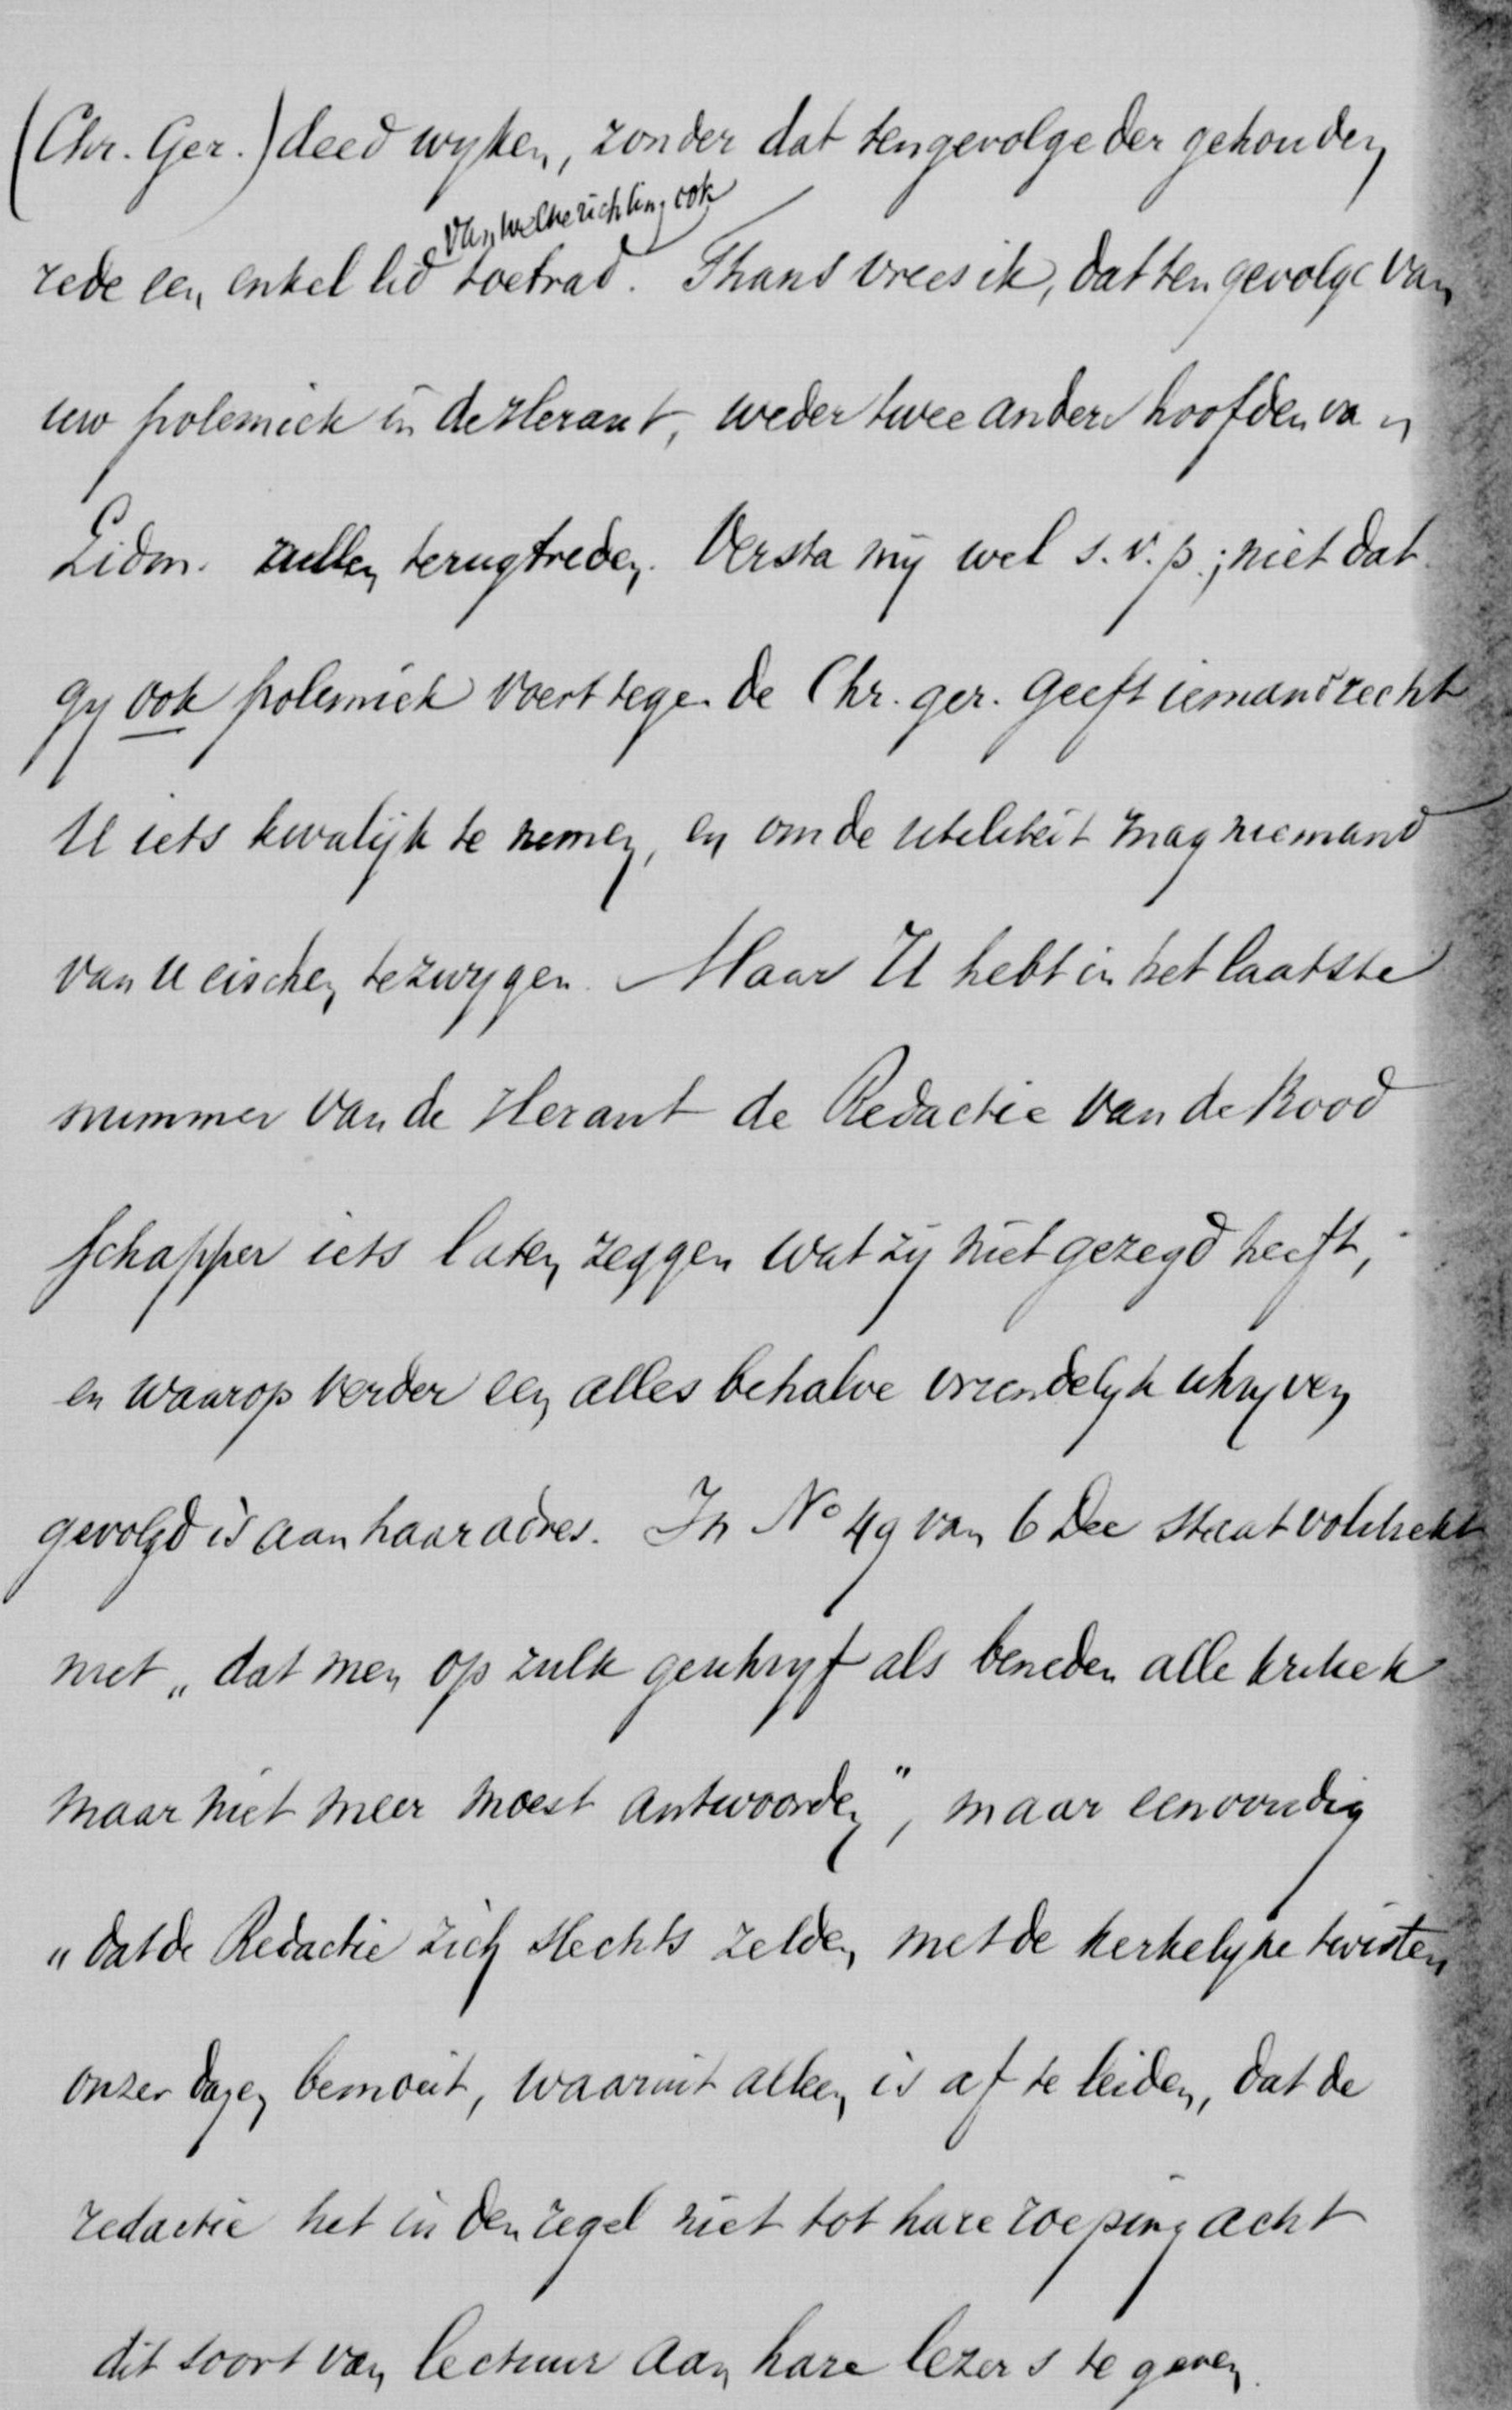 (Chr. Ger.) deed wyken, zonder dat tengevolge der gehouden
van welke richting ook
rede een enkel lid toetrad. Thans vrees ik, dat ten gevolge van
uw polemiek in de Heraut, weder twee andere hoofden van
Lidm. zullen terugtreden. Versta mij wel s.v.p.; niet dat
gy ook polemiek voert tegen de Chr. ger. geeft iemand recht
U iets kwalijk te nemen, en om de utiliteit mag niemand
van U eischen te zwygen. Maar U hebt in het laatste
nummer van de Heraut de Redactie van de Bood
schapper iets laten zeggen wat zij niet gezegd heeft,
en waarop verder een alles behalve vriendelyk schryven
gevolgd is aan haar adres. In No 49 van 6 Dec staat volstrekt
niet „dat men op zulk geschryf als beneden alle kritiek
maar niet meer moest antwoorden", maar eenvoudig
„dat de Redactie zich slechts zelden met de kerkelyke twisten
onzer dagen bemoeit, waaruit alleen is af te leiden, dat de
redactie het in den regel niet tot hare roeping acht
dit soort van lectuur aan hare lezers te geven.